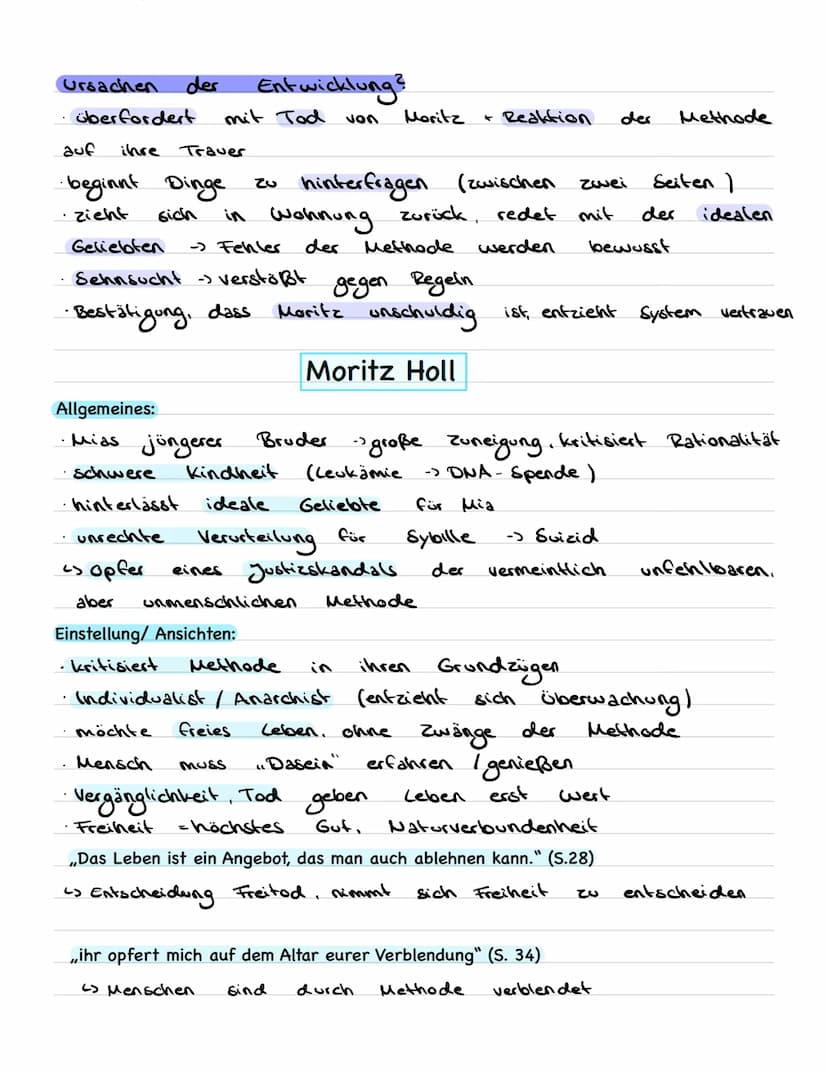 Ursachen der Entwicklung?
· überfordert mit Tod von Moritz + Reaktion der Methode
auf ihre Trauer
· beginnt Dinge zu hinterfragen (zwischen zwei Seiten)
· zieht sich in Wohnung zurück, redet mit der idealen
Geliebten -> Fehler der Methode werden bewusst
· Sehnsucht -> verstößt gegen Regeln
· Bestätigung, dass Moritz unschuldig ist, entzieht System vertrauen
Moritz Holl
Allgemeines:
· Mias jüngerer Bruder -> große Zuneigung, kritisiert Rationalität
· schwere Kindheit (Leukämie -> DNA-Spende)
· hinterlässt ideale Geliebte für Mia
· unrechte Verurteilung für Sybille -> Suizid
↳ Opfer eines Justizskandals der vermeintlich unfehlbaren,
aber unmenschlichen Methode
Einstellung/ Ansichten:
· kritisiert Methode in ihren Grundzügen
· Individualist / Anarchist (entzieht sich Überwachung)
· möchte freies Leben, ohne Zwänge der Methode
· Mensch muss „Dasein" erfahren / genießen
· Vergänglichkeit, Tod geben Leben erst Wert
· Freiheit = höchstes Gut, Naturverbundenheit
„Das Leben ist ein Angebot, das man auch ablehnen kann." (S.28)
↳ Entscheidung Freitod, nimmt sich Freiheit zu entscheiden
„ihr opfert mich auf dem Altar eurer Verblendung" (S. 34)
↳ Menschen sind durch Methode verblendet